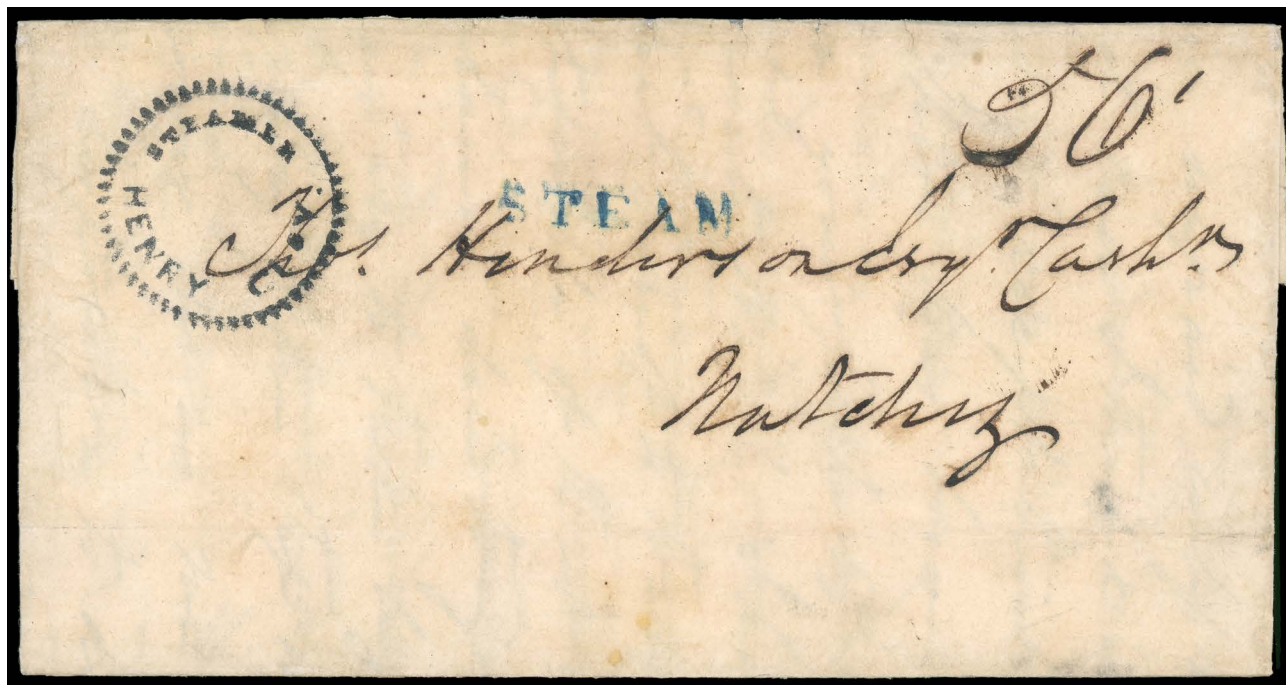 STEAMER
HENRY CLAY
STEAM
Thos. Henderson Esqr. Cashr.
Natchez